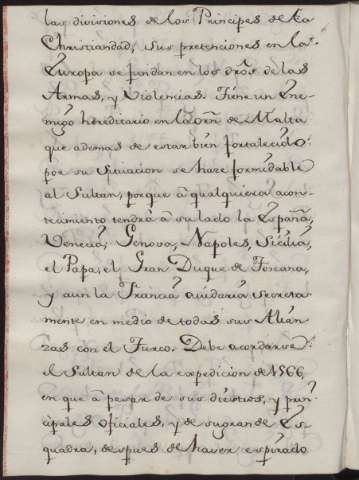 las divisiones de los Principes de la
Christiandad, sus pretenciones en la
Europa se fundan en los dros de las
Armas, y Violencias. Tiene un Ene-
migo hereditario en la Orn de Malta
que ademas de estar bien fortalecido
por su Situacion se hace formidable
al Sultan, porque â qualquiera acon-
tecimiento tendrá â su lado la España,
Venecia, Genova, Napoles, Sicilia,
el Papa, el Gran Duque de Toscana,
y aun la Francia aiudaria Secreta
mente en medio de todas sus Alian
zas con el Turco. Debe acordarse
el Sultan de la expedicion de 1566,
en que â pesar de sus y prin
cipales oficiales, y de su grande Es-
quadra, despues de haver espirado